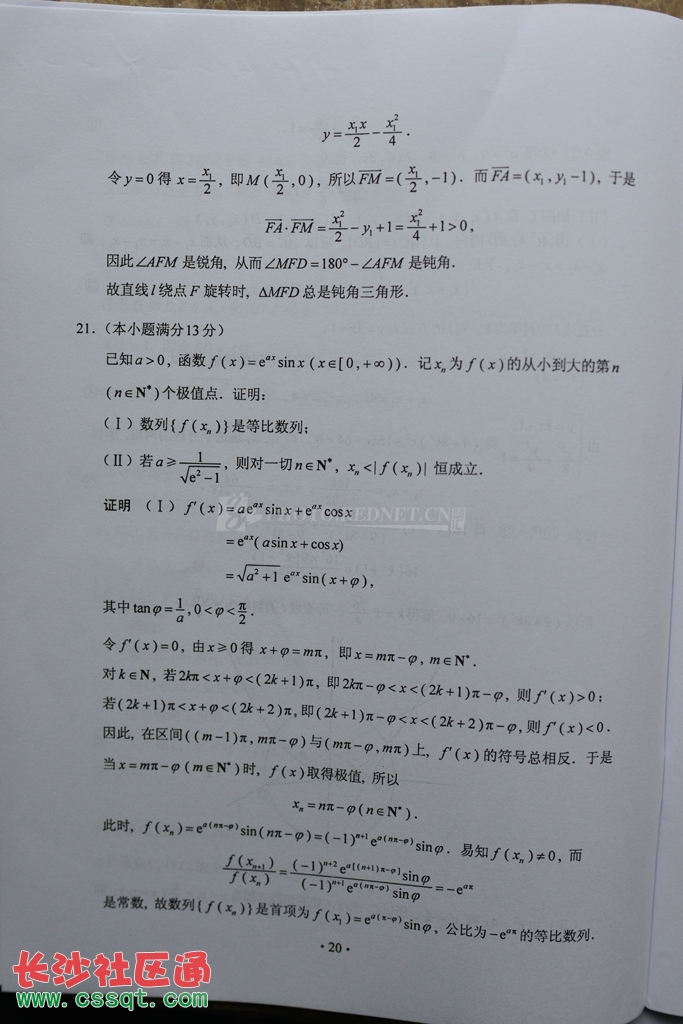 y=\frac{x_1x}{2}-\frac{x_1^2}{4}.
令y=0得 x=\frac{x_1}{2}, 即M(\frac{x_1}{2},0), 所以\overline{FM}=(\frac{x_1}{2},-1). 而\overline{FA}=(x_1,y_1-1), 于是
\overline{FA}·\overline{FM}=\frac{x_1^2}{2}-y_1+1=\frac{x_1^2}{4}+1>0,
因此∠AFM 是锐角, 从而∠MFD=180°-∠AFM 是钝角.
故直线l绕点F 旋转时, ΔMFD总是钝角三角形.
21.(本小题满分13分)
已知a>0, 函数f(x)=e^{ax}sinx(x∈[0,+∞)). 记x_n为f(x)的从小到大的第n
(n∈N^*)个极值点. 证明:
(Ⅰ)数列{f(x_n)}是等比数列;
(Ⅱ)若a≥\frac{1}{\sqrt{e^2-1}}, 则对一切n∈N^*, x_n<|f(x_n)| 恒成立.
证明 (Ⅰ) f′(x)=ae^{ax}sinx+e^{ax}cosx
=e^{ax}(asinx+cosx)
=\sqrt{a^2+1} e^{ax}sin(x+φ),
其中tanφ=\frac{1}{a},0<φ<\frac{π}{2}.
令f′(x)=0, 由x≥0得 x+φ=mπ, 即x=mπ-φ, m∈N^*.
对k∈N, 若2kπ<x+φ<(2k+1)π, 即2kπ-φ<x<(2k+1)π-φ, 则f′(x)>0;
若(2k+1)π<x+φ<(2k+2)π,即(2k+1)π-φ<x<(2k+2)π-φ,则f′(x)<0.
因此, 在区间((m-1)π,mπ-φ)与(mπ-φ,mπ)上, f′(x)的符号总相反. 于是
当x=mπ-φ(m∈N^*)时, f(x)取得极值, 所以
x_n=nπ-φ(n∈N^*).
此时, f(x_n)=e^{a(nπ-φ)}sin(nπ-φ)=(-1)^{n+1}e^{a(nπ-φ)}sinφ. 易知f(x_n)≠0, 而
\frac{f(x_{n+1})}{f(x_n)}=\frac{(-1)^{n+2}e^{a[(n+1)π-φ]}sinφ}{(-1)^{n+1}e^{a(nπ-φ)}sinφ}=-e^{aπ}
是常数, 故数列{f(x_n)}是首项为f(x_1)=e^{a(π-φ)}sinφ, 公比为-e^{aπ}的等比数列.
·20·
长沙社区通
www.cssqt.com